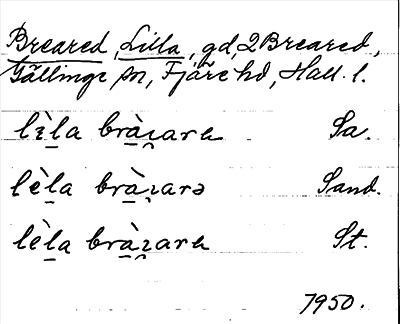 Breared, Lilla, gd, 2 Breared,
Gällinge sn, Fjäre hd, Hall. l.
lı̀l̠a brà̠ɿ̯ara Sa.
lèl̠a brà̠ɿ̯arə Sand.
lèl̠a brà̠ɿ̯ara St.
1950.